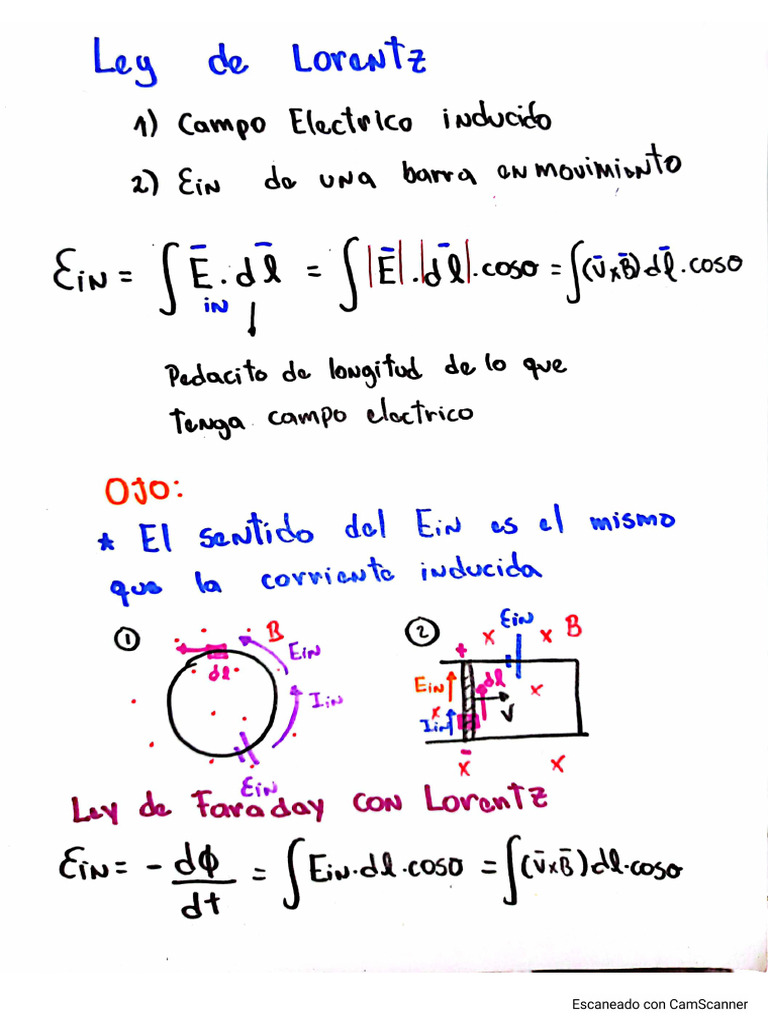 Ley de Lorentz
1) Campo Electrico inducido
2) Ein de una barra en movimiento
Ɛin = ∫ E̅in · dl̅ = ∫ |E̅| · |dl̅| · cosθ = ∫(v̅ x B̅) dl̅ · cosθ
Pedacito de longitud de lo que
tenga campo electrico
OJO:
* El sentido del Ein es el mismo
que la corriente inducida
① B Ein
dl
Iin
Ɛin
② Ɛin x x B
+
Ein dl x
x Iin V
-
x x
Ley de Faraday con Lorentz
Ɛin = - dΦ/dt = ∫ Ein · dl · cosθ = ∫(v̅ x B̅) dl · cosθ
Escaneado con CamScanner